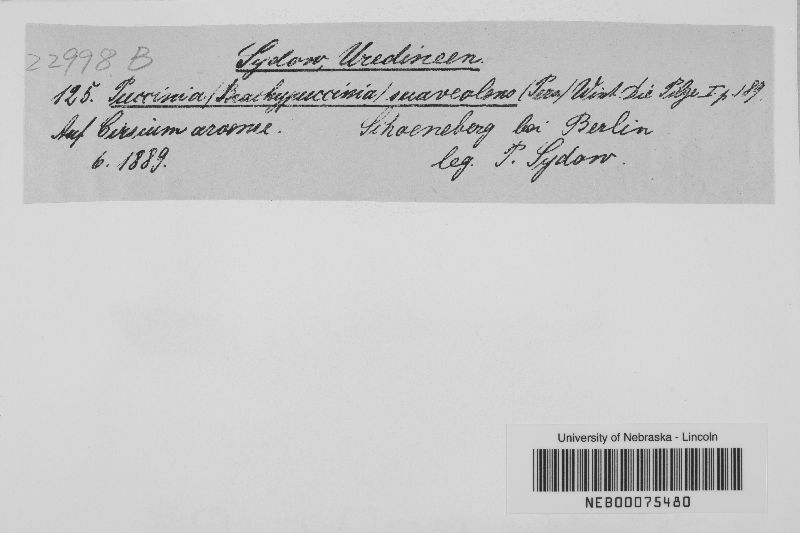 22998 B
Sydow, Uredineen.
125. Puccinia (Brachypuccinia) suaveolens (Pers) Wint. Die Pilze I p. 189.
Auf Cirsium arvense. Schoeneberg bei Berlin
6. 1889. leg. P. Sydow.
University of Nebraska - Lincoln
NEB00075480